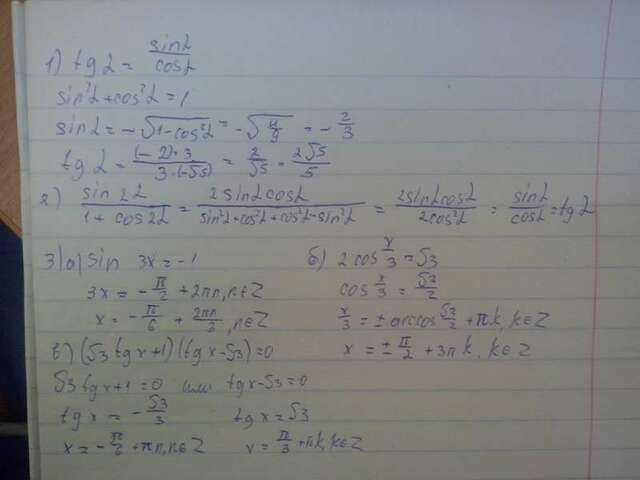 1) tg α = sinα/cosα
sin²α + cos²α = 1
sinα = -√(1-cos²α) = -√(4/9) = -2/3
tg α = (-2)·3/3·(-√5) = 2/√5 = 2√5/5
2) sin2α/(1+cos2α) = 2sinαcosα/(sin²α+cos²α+cos²α-sin²α) = 2sinαcosα/2cos²α = sinα/cosα = tg α
3) а) sin 3x = -1
3x = -π/2 + 2πn, n∈Z
x = -π/6 + 2πn/3, n∈Z
б) 2cos x/3 = √3
cos x/3 = √3/2
x/3 = ± arccos √3/2 + πk, k∈Z
x = ± π/2 + 3πk, k∈Z
в) (√3 tgx+1)(tgx-√3)=0
√3 tgx+1=0 или tgx-√3=0
tgx = -√3/3 tgx = √3
x = -π/6 + πn, n∈Z x = π/3 + πk, k∈Z